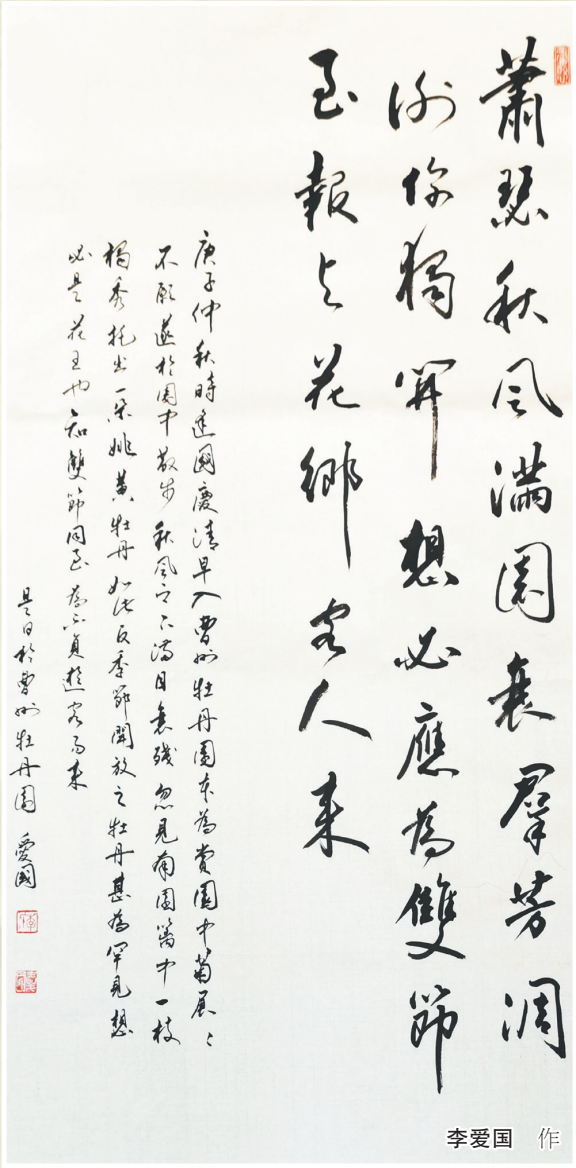 蕭瑟秋風滿園衰羣芳凋
謝你獨開想必應為雙節
至報与花鄉客人来
庚子仲秋時逢國慶清早入曹州牡丹園本為賞園中菊展
不願遊於園中散步秋風下滿目衰殘忽見南園篱中一枝
獨秀托出一朵姚黃牡丹如此反季節開放之牡丹甚為罕見想
必是花王也知雙節同至為不負遊客而来
是日於曹州牡丹園 愛國
李爱国 作